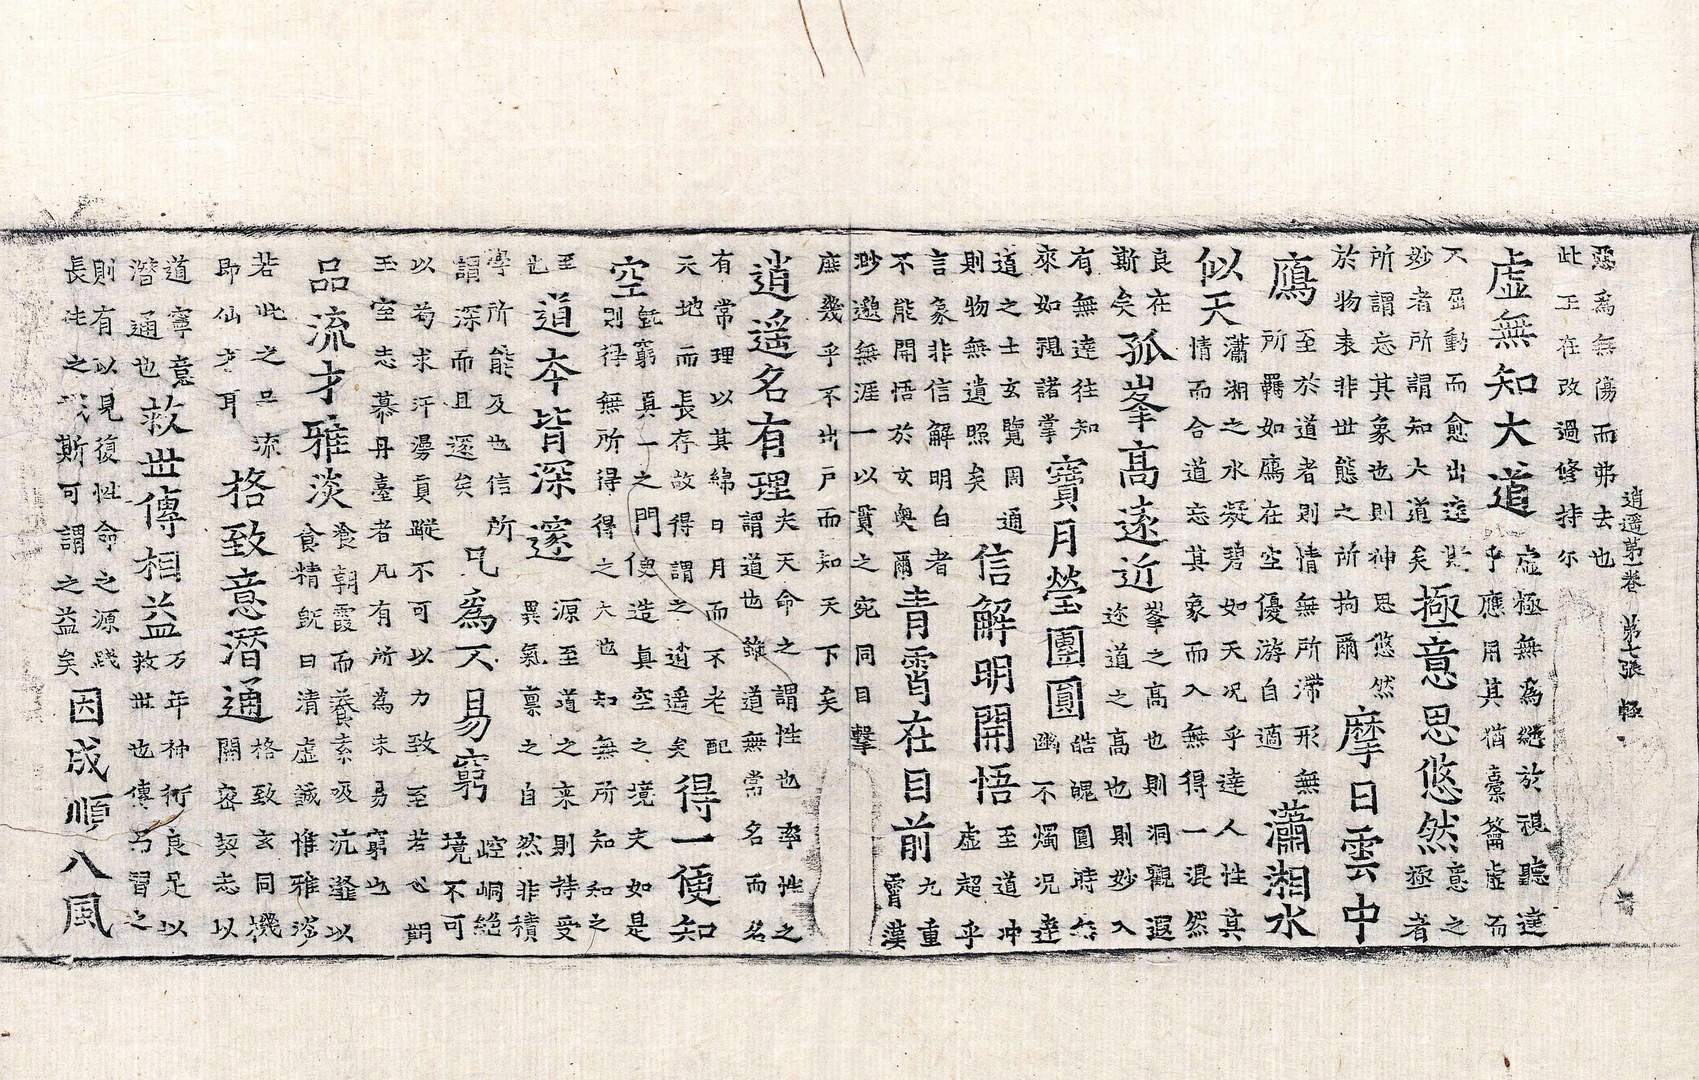 惡為無傷而弗去也
此正在改過修持尒
逍遥第七卷 第七張 極
虛無知大道
虛極無為絕於視聽達
乎應用其猶橐籥虛而
不屈動而愈出迨斯
妙者所謂知大道矣
極意思悠然
意之
極者
所謂忘其象也則神思悠然
於物表非世態之所拘爾
摩日雲中
鴈
至於道者則情無所滯形無
所羈如鴈在空優游自適
瀟湘水
似天
瀟湘之水凝碧如天況乎達人性真
情而合道忘其象而入無得一混然
良在
斯矣
孤峯高遠近
峯之高也則洞觀遐
迩道之高也則妙入
有無達往知
來如視諸掌
寶月瑩團圓
皓魄圓時無
幽不燭況達
道之士玄覽周通
則物無遺照矣
信解明開悟
至道冲
虛超乎
言象非信解明白者
不能開悟於玄奧爾
青霄在目前
九重
霄漢
眇邈無涯一以貫之宛同目擊
庶幾乎不出戶而知天下矣
逍遥名有理
夫天命之謂性也率性之
謂道也雖道無常名而名
有常理以其綿日月而不老配
天地而長存故得謂之逍遥矣
得一便知
空
既窮真一之門便造真空之境夫如是
則得無所得得之大也知無所知知之
至
也
道本皆深邃
源至道之來則持受
異氣稟之自然非積
學所能及也信所
謂深而且邃矣
凡為不易窮
崆峒絕
境不可
以苟求汗漫真蹤不可以力致至若心期
玉室志慕丹臺者凡有所為未易窮也
品流才雅淡
飡朝霞而養素吸沆瀣以
食精既曰清虛誠惟雅淡
若此之品流
即仙才耳
格致意潛通
格致玄同機
關密契志以
道寧意
潛通也
救世傳相益
万年神術良足以
救世也傳乃習之
則有以見復性命之源踐
長生之域斯可謂之益矣
因成順八風